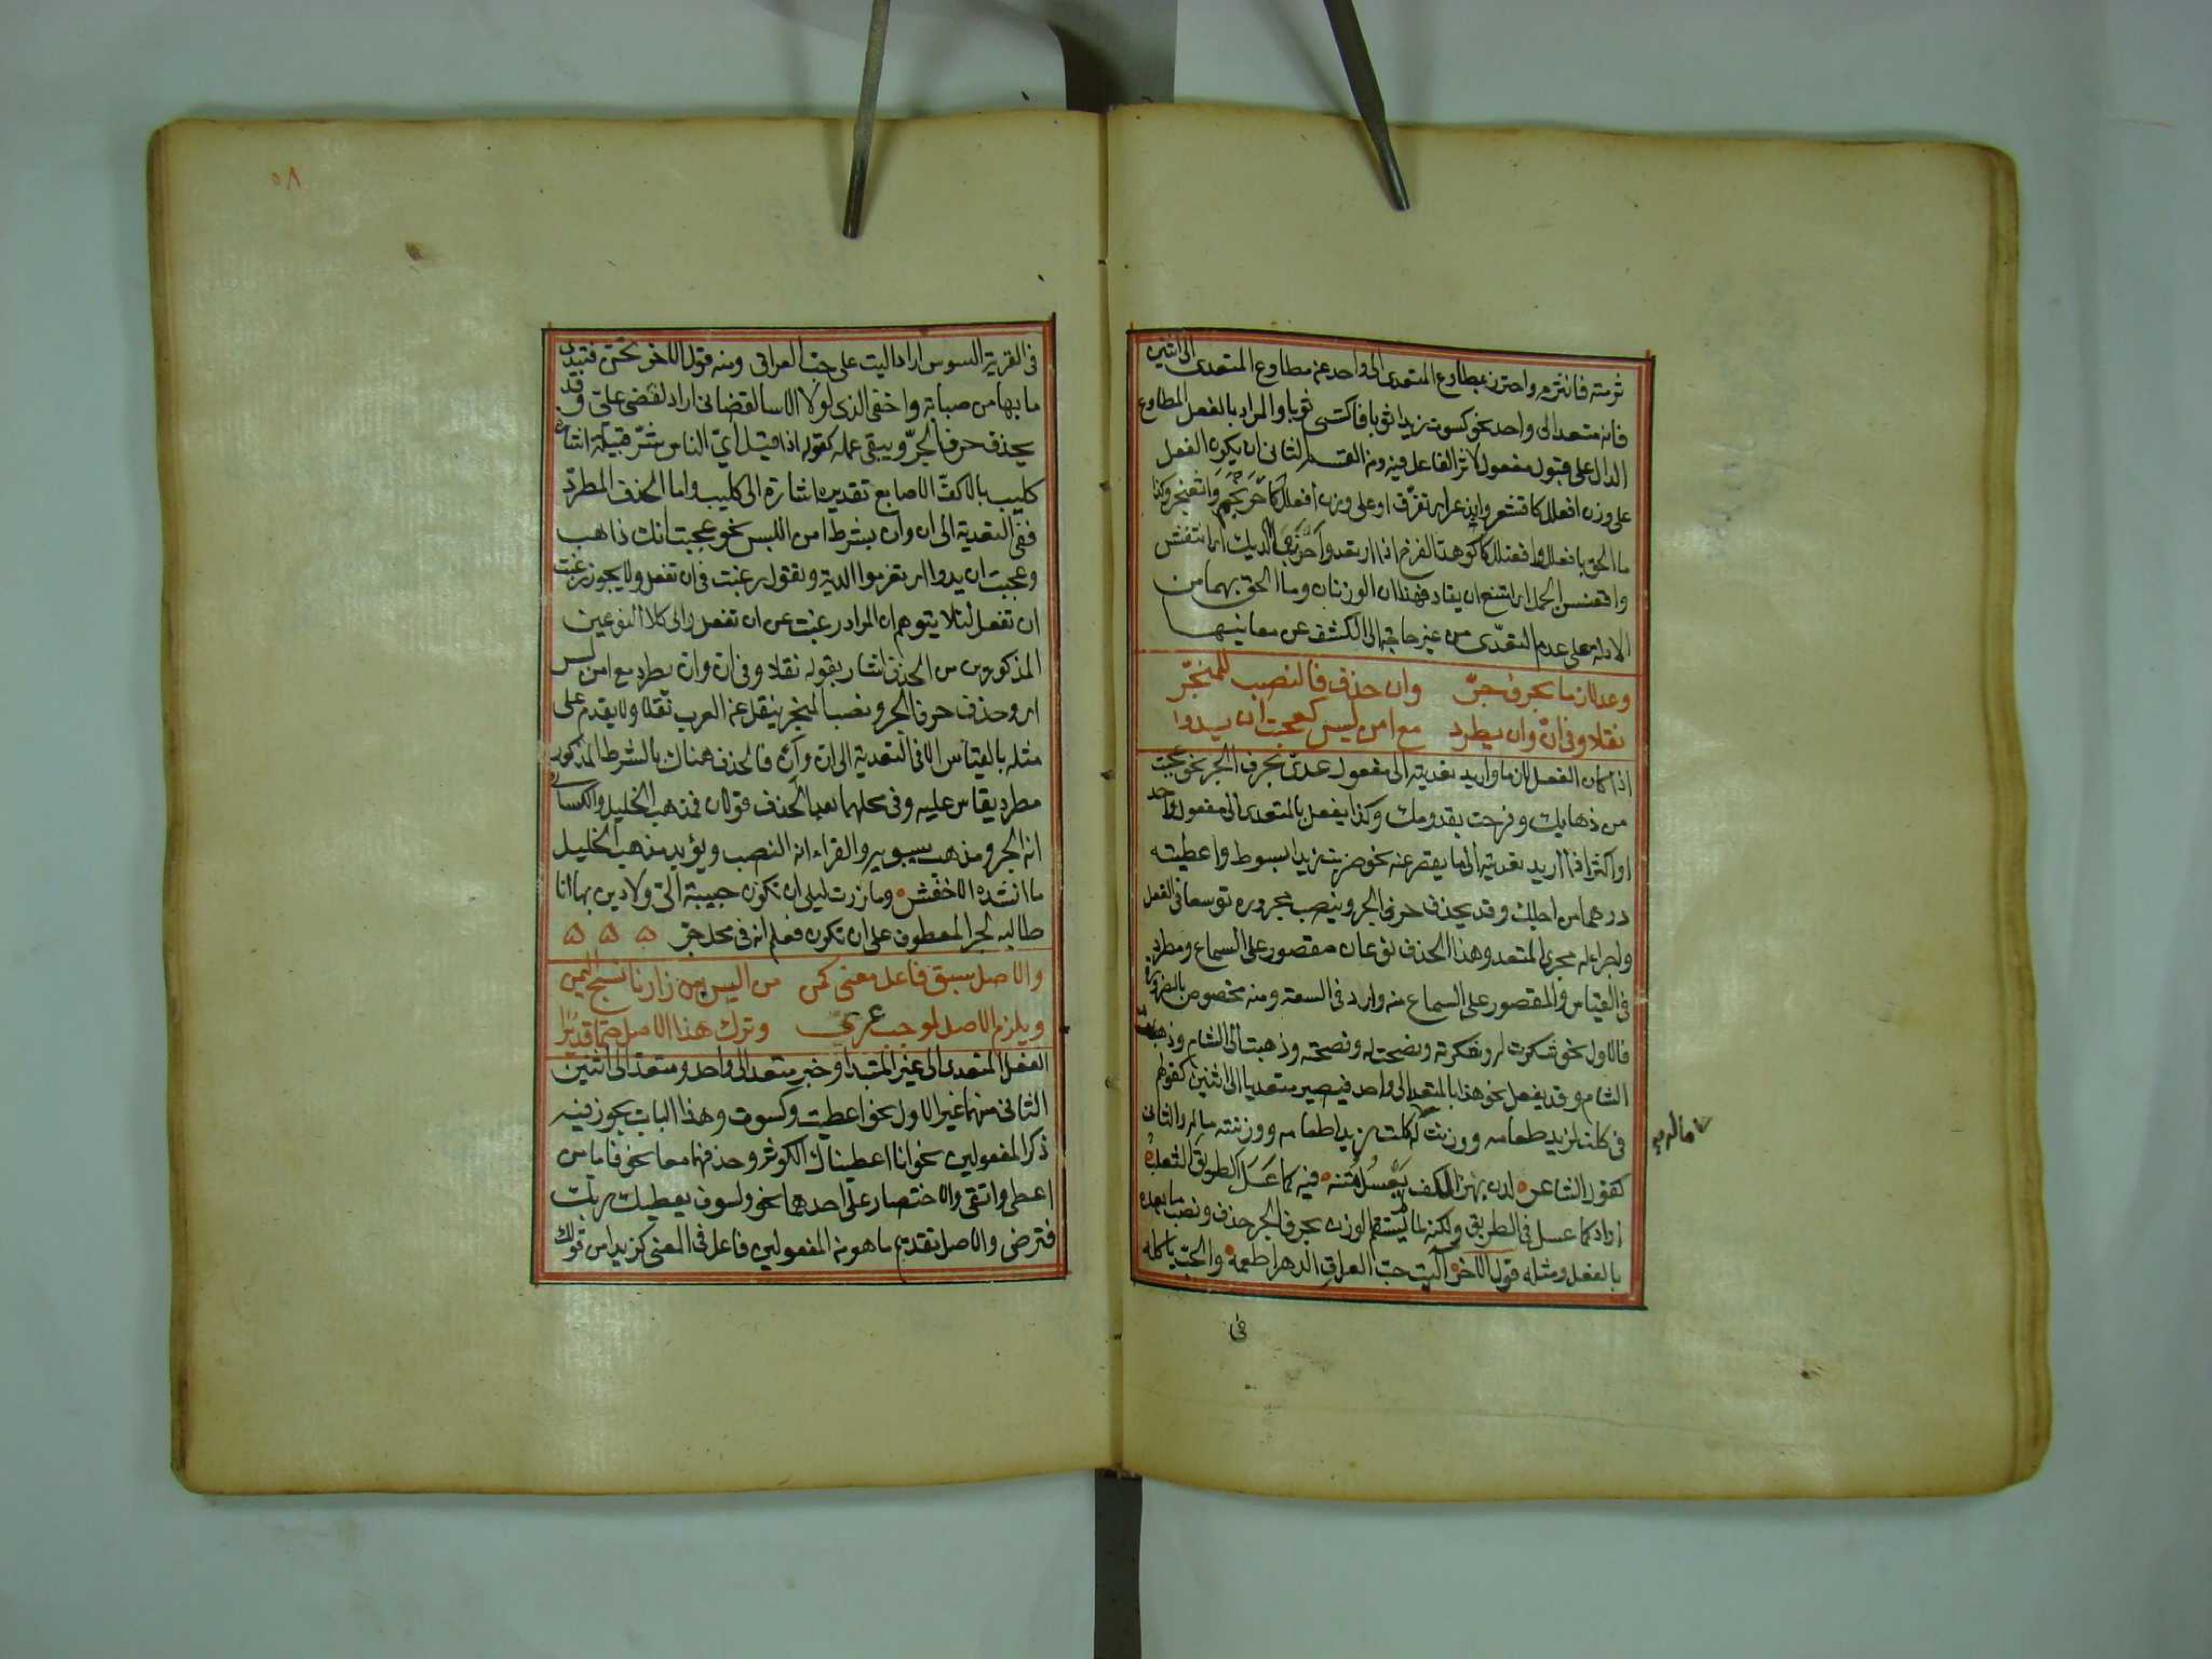 ثرمته فانثرم واحترز بمطاوع المتعدى الى واحد عن مطاوع المتعدى الى اثنين
فانه متعد الى واحد نحو كسوت زيدا ثوبا فاكتسى ثوبا والمراد بالفعل المطاوع
الدال على قبول مفعول لاثر الفاعل فيه ومن القسم الثانى ان يكون الفعل
على وزن افعلل كاقشعر وابذعر اى تفرق او على وزن افعنلل كاحرنجم واثعنجر وكذا
ما الحق بافعلل وافعنلل كاكوهد الفرخ اذا ارتعد واحرنبى الديك اى انتفش
واقعنسس الجمل اى امتنع ان يقاد فهذان الوزنان وما الحق بهما من
الادلة على عدم التعدى من غير حاجة الى الكشف عن معانيها
وعد لازما بحرف جر وان حذف فالنصب للمنجر
نقلا وفى ان وان يطرد مع امن لبس كعجبت ان يدوا
اذا كان الفعل لازما واريد تعديته الى مفعول عدى بحرف الجر نحو عجبت
من ذهابك وفرحت بقدومك وكذا يفعل بالمتعدى الى مفعول واحد
او اكثر اذا اريد تعديته الى ما يقصر عنه نحو ضربت زيدا بسوط واعطيته
درهما من اجلك وقد يحذف حرف الجر وينصب مجروره توسعا فى الفعل
ولجراء له مجرى المتعد وهذا الحذف نوعان مقصور على السماع ومطرد
فى القياس والمقصور على السماع منه وارد فى السعة ومنه مخصوص بالضرورة
فالاول نحو شكرت له وشكرته ونصحت له ونصحته وذهبت الى الشام وذهبت
الشام وقد يفعل نحو هذا بالمتعد الى واحد فيصير متعديا الى اثنين كقولهم
فى كلت لزيد طعامه ووزنت كلت زيدا طعامه ووزنته ماله والثانى
ماله صح
كقول الشاعر لدن بهز الكف يعسل متنه فيه كما عسل الطريق الثعلب
اراد كما عسل فى الطريق ولكنه لما لم يستقم الوزن بحرف الجر حذف ونصب ما بعده
بالفعل ومثله قول الاخر آليت حب العراق الدهر اطعمه والحب ياكله
فى
٥٨
فى القرية السوس اراد آليت على حب العراق ومنه قول الاخر تحن فتبدى
ما بها من صبابة واخفى الذى لولا الاسا لقضانى اراد لقضى على وقد
يحذف حرف الجر ويبقى عمله كقوله اذا قيل اى الناس شر قبيلة اشارت
كليب بالاكف الاصابع تقديره اشارة الى كليب واما الحذف المطرد
ففى التعدية الى ان وان بشرط امن اللبس نحو عجبت انك ذاهب
وعجبت ان يدوا اى تغرموا الدية وتقول رغبت فى ان تفعل ولا يجوز رغبت
ان تفعل لئلا يتوهم ان المراد رغبت عن ان تفعل والى كلا النوعين
المذكورين من الحذف اشار بقوله نقلا وفى ان وان يطرد مع امن لبس
اى وحذف حرف الجر ونصب المنجر ينقل عن العرب نقلا ولا يقدم على
مثله بالقياس الا فى التعدية الى ان وان فالحذف هناك بالشرط المذكور
مطرد يقاس عليه وفى محلهما بعد الحذف قولان فمذهب الخليل والكسائى
انه الجر ومذهب سيبويه والفراء انه النصب ويؤيد مذهب الخليل
ما انشده الاخفش وما زرت ليلى ان تكون حبيبة الى ولا دين بها انا
طالبه لجر المعطوف على ان تكون فعلم انه فى محل جر ۵ ۵ ۵
والاصل سبق فاعل معنى كمن من البسن من زارنا نسج اليمن
ويلزم الاصل لموجب عرى وترك هذا الاصل حتما قد يرا
الفعل المتعدى الى غير المبتدا وخبر متعد الى واحد ومتعد الى اثنين
الثانى منهما غير الاول نحو اعطيت وكسوت وهذا الباب يجوز فيه
ذكر المفعولين نحو انا اعطيناك الكوثر وحذفهما معا نحو فاما من
اعطى واتقى والاختصار على احدهما نحو ولسوف يعطيك ربك
فترضى والاصل تقديم ما هو من المفعولين فاعل فى المعنى كزيد من قولك